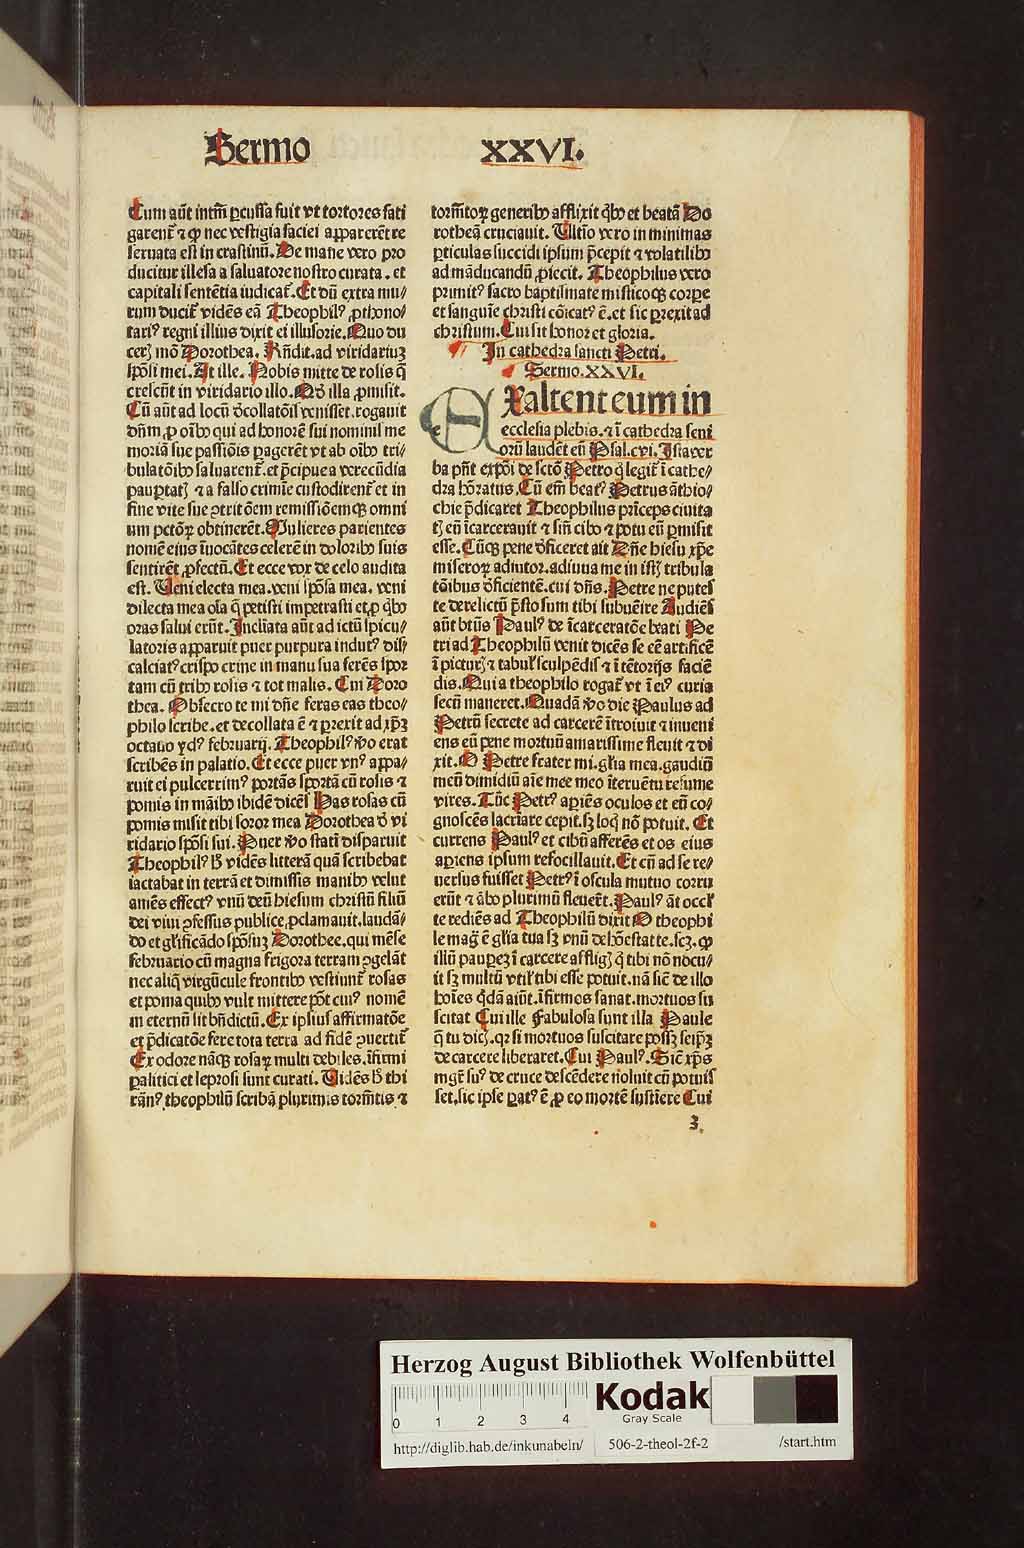 Sermo XXVI.
Cum aūt intm̄ ꝑcussa fuit vt tortores fati
garent᷑ ⁊ ꝙ nec vestigia faciei apparerēt re
seruata est in crastinū. De mane vero pro
ducitur illesa a saluatore nostro curata. et
capitali sentētia iudicat᷑. Et dū extra mu⸗
rum ducit᷑ vidēs eā Theophilꝰ ꝓthono⸗
tariꝰ regni illius dixit ei illusorie. Quo du
ceris mō Dorothea. Rn̄dit. ad viridariuꝫ
spōsi mei. At ille. Nobis mitte de rosis q̄
crescūt in viridario illo. Qđ illa ꝓmisit.
Cū aūt ad locū decollatōis venisset. rogauit
dn̄m ꝓ oībꝰ qui ad honorē sui nominis me
moriā sue passiōis ꝑagerēt vt ab oībꝰ tri⸗
bulatōibꝰ saluarent᷑. et p̄cipue a verecūdia
paupertatꝭ ⁊ a falso crimīe custodirent᷑ et in
fine vite sue ꝯtritōem remissiōemqꝫ omni
um pctōꝝ obtinerēt. Mulieres parientes
nomē eius īuocātes celerē in doloribꝰ suis
sentirēt ꝓfectū. Et ecce vox de celo audita
est. Veni electa mea. veni spōsa mea. veni
dilecta mea oīa q̄ petisti impetrasti et ꝓ qͥbꝰ
oras salui erūt. Inclīata aūt ad ictū spicu⸗
latoris apparuit puer purpura indutꝰ dis⸗
calciatꝰ crispo crine in manu sua ferēs spor
tam cū tribꝰ rosis ⁊ tot malis. Cui Doro
thea. Obsecro te mi dn̄e feras eas theo⸗
philo scribe. et decollata ē ⁊ ꝑrexit ad xp̄ꝫ
octauo ydꝰ februarij. Theophilꝰ v̄o erat
scribēs in palatio. Et ecce puer vnꝰ appa⸗
ruit ei pulcerrimꝰ portās sportā cū rosis ⁊
pomis in māibꝰ ibidē dicēs Has rosas cū
pomis misit tibi soror mea Dorothea d̄ vi
ridario spōsi sui. Puer v̄o statī disparuit
Theophilꝰ h̄ vidēs litterā quā scribebat
iactabat in terrā et dimissis manibꝰ velut
amēs effectꝰ vnū deū hiesum christū filiū
dei viui ꝯfessus publice ꝓclamauit. laudā⸗
do et gl̄ificādo spōsuꝫ Dorothee. qui mēse
februario cū magna frigora terram ꝯgelāt
nec aliqͣ virgūcule frontibꝰ vestiunt᷑ rosas
et poma quibꝰ vult mittere pōt cuiꝰ nomē
in eternū sit bn̄dictū. Ex ipsius affirmatōe
et p̄dicatōe fere tota terra ad fidē ꝯuertit᷑
Ex odore nāqꝫ rosaꝝ multi debiles. īfirmi
palitici et leprosi sunt curati. Vidēs h̄ thi
rānꝰ. theophilū scribā plurimis tormētis ⁊
tormētoꝝ generibꝰ afflixit qͥbꝰ et beatā Do
rotheā cruciauit. Vltīo vero in minimas
ꝑticulas succidi ipsum p̄cepit ⁊ volatilibꝰ
ad māducandū ꝓiecit. Theophilus vero
primitꝰ sacro baptismate misticoqꝫ corpe
et sanguīe christi cōicatꝰ ē. et sic ꝑrexit ad
christum. Cui sit honor et gloria.
In cathedra sancti Petri.
Sermo. XXVI.
EXaltent eum in
ecclesia plebis. ⁊ ī cathedra seni
orū laudēt eū Psal. cvi. Ista ver
ba pn̄t expōi de scto Petro q̄ legit᷑ ī cathe⸗
dra hōratus. Cū em̄ beatꝰ Petrus āthio⸗
chie p̄dicaret Theophilus prīceps ciuita
tꝭ eū īcarcerauit ⁊ sin̄ cibo ⁊ potu eū ꝑmisit
esse. Cūqꝫ pene deficeret ait Dn̄e hiesu xp̄e
miseroꝝ adiutor. adiuua me in istꝭ tribula
tōibus deficientē. cui dn̄s. Petre ne putes
te derelictū p̄sto sum tibi subuēire Audiēs
aūt btūs Paulꝰ de īcarceratōe beati Pe
tri ad Theophilū venit dicēs se eē artificē
ī picturꝭ ⁊ tabul᷑ sculpēdis ⁊ ī tētorijs faciē
dis. Qui a theophilo rogatꝰ vt ī eiꝰ curia
secū maneret. Quadā v̄o die Paulus ad
Petrū secrete ad carcerē ītroiuit ⁊ inueni
ens eū pene mortuū amarissime fleuit ⁊ di
xit. O Petre frater mi. gl̄ia mea. gaudiū
meū dimidiū aīe mee meo īteruētu resume
vires. Tūc Petrꝰ aꝑiēs oculos et eū co⸗
gnoscēs lacriare cepit. sꝫ loqͥ nō potuit. Et
currens Paulꝰ et cibū afferēs et os eius
aꝑiens ipsum refocillauit. Et cū ad se re⸗
uersus fuisset Petrꝰ ī oscula mutuo corru
erūt ⁊ ābo plurimū fleuert̄. Paulꝰ āt occl᷑
te rediēs ad Theophilū dixit O theophi
le mag᷑ ē gl̄ia tua sꝫ vnū dehōestat te. scꝫ. ꝙ
illū pauꝑeꝫ ī carcere affligꝭ q̄ tibi nō nocu⸗
it sꝫ multū vtil᷑ tibi esse potuit. nā sic̄ de illo
hoīes qͥdā aiūt. īfirmos sanat. mortuos su
scitat Cui ille Fabulosa sunt illa Paule
q̄ tu dicꝭ. qꝛ si mortuos suscitare possꝫ seipꝫ
de carcere liberaret. Cui Paulꝰ. Sic̄ xp̄s
mgr̄ suꝰ de cruce descēdere noluit cū potuis
set. sic ipse ꝑatꝰ ē ꝓ eo mortē sustiere Cui
3.
Herzog August Bibliothek Wolfenbüttel
0 1 2 3 4
Kodak
Gray Scale
http://diglib.hab.de/inkunabeln/ 506-2-theol-2f-2 /start.htm